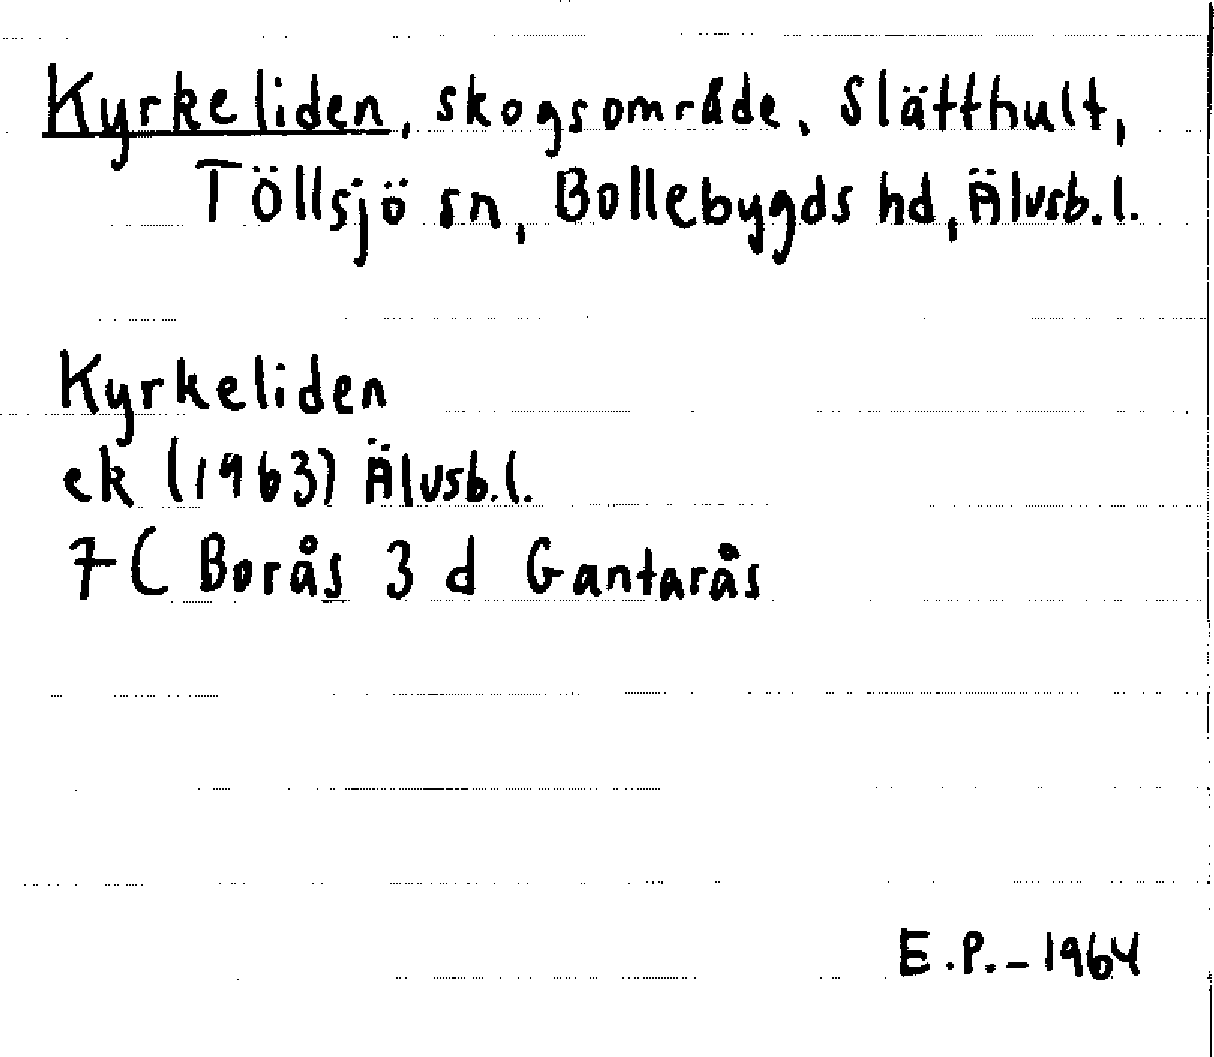 Kyrkeliden, skogsområde, Slätthult,
Töllsjö sn, Bollebygds hd, Älvsb. l.
Kyrkeliden
ek (1963) Älvsb. l.
7C Borås 3 d Gantarås
E.P. - 1964